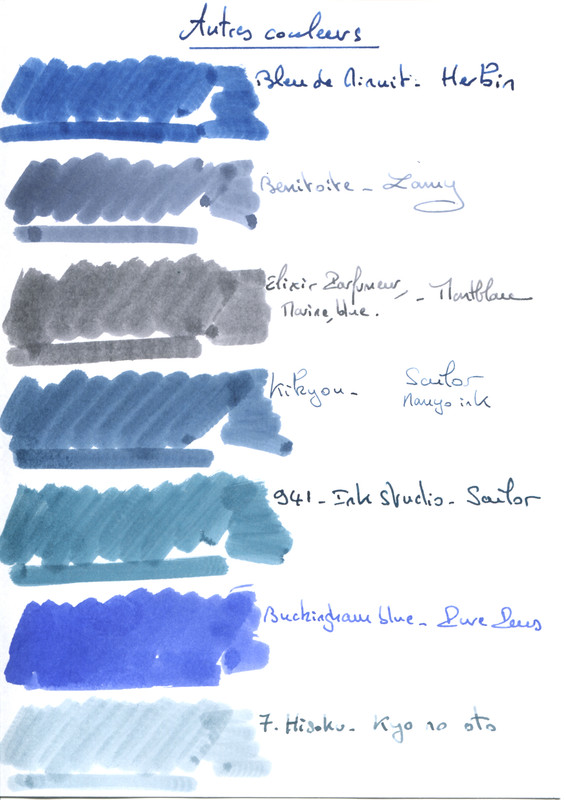 Autres couleurs
Bleu de Minuit - Herbin
Benitoite - Lamy
Elixir Parfumeur, - Montblanc
Marine, blue.
Kikyou - Sailor
Manyo ink
941 - Ink Studio - Sailor
Buckingham blue - Pure Pens
7. Hisoku - Kyo no oto